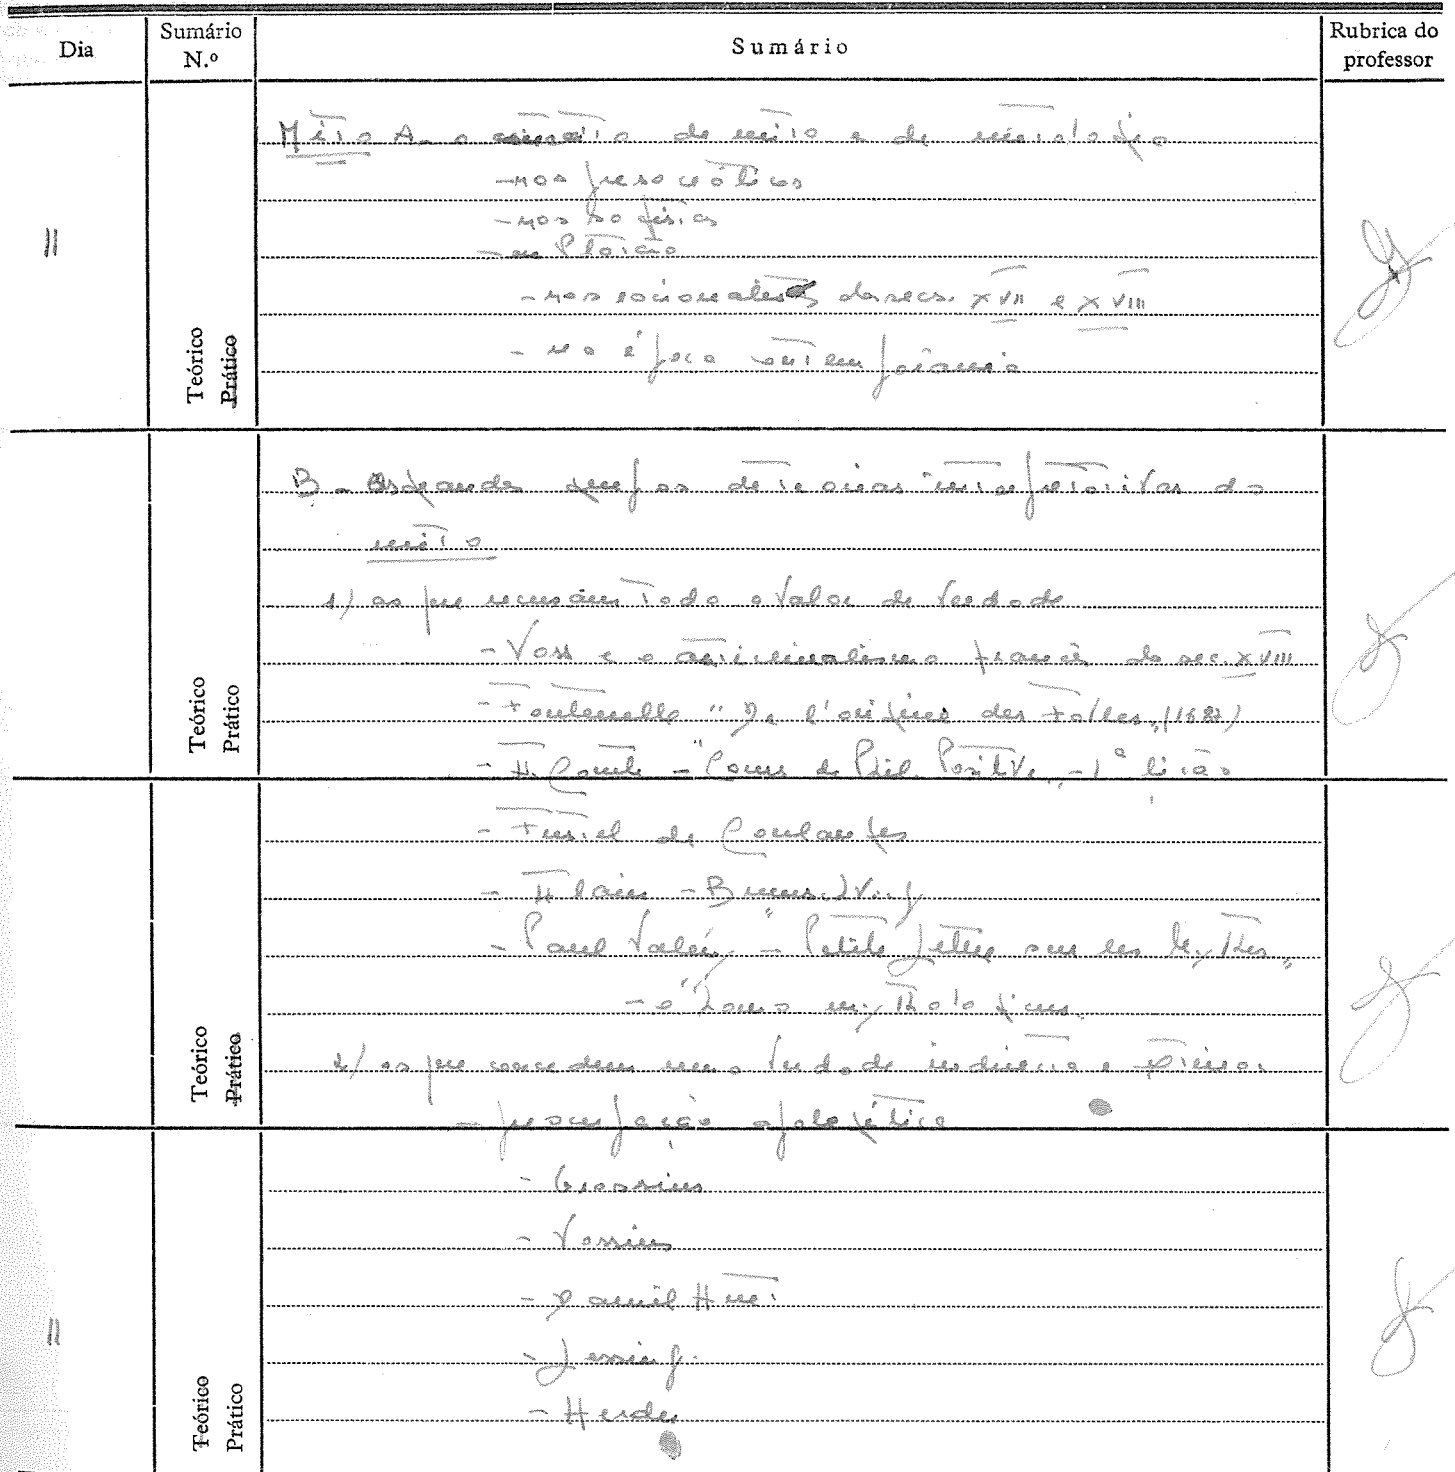 Dia
Sumário N.º
Sumário
Rubrica do professor
Mito A - o conceito de mito e de mitologia
- nos presocráticos
- nos sofistas
- em Platão
- nos racionalistas dos secs. XVII e XVIII
- na época contemporânea
Teórico
Prático
"
B - Os grandes grupos de teorias interpretativas do
mito
1) as que recusam todo o valor de verdade
- Voss e o francês do sec. XVIII
- Fontenelle "De l'origine des Fables"
- A. Comte - "Cours de Phil. Positive" - 1ª lição
Teórico
Prático
- Fustel de Coulanges
- Alain - Brunschvicg
- Paul Valéry - "Petite Lettre sur les Mythes"
Teórico
Prático
2) as que concedem uma verdade indirecta e
- preocupação apologética
- Vossius
- Daniel Huet
- Lessing
- Herder
Teórico
Prático
"